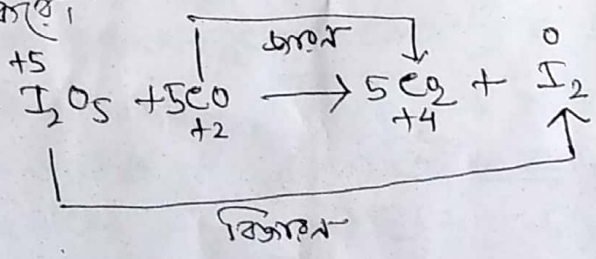 করে।
জারন
+5 0
I₂O₅ + 5CO ⟶ 5CO₂ + I₂
+2 +4
বিজারন